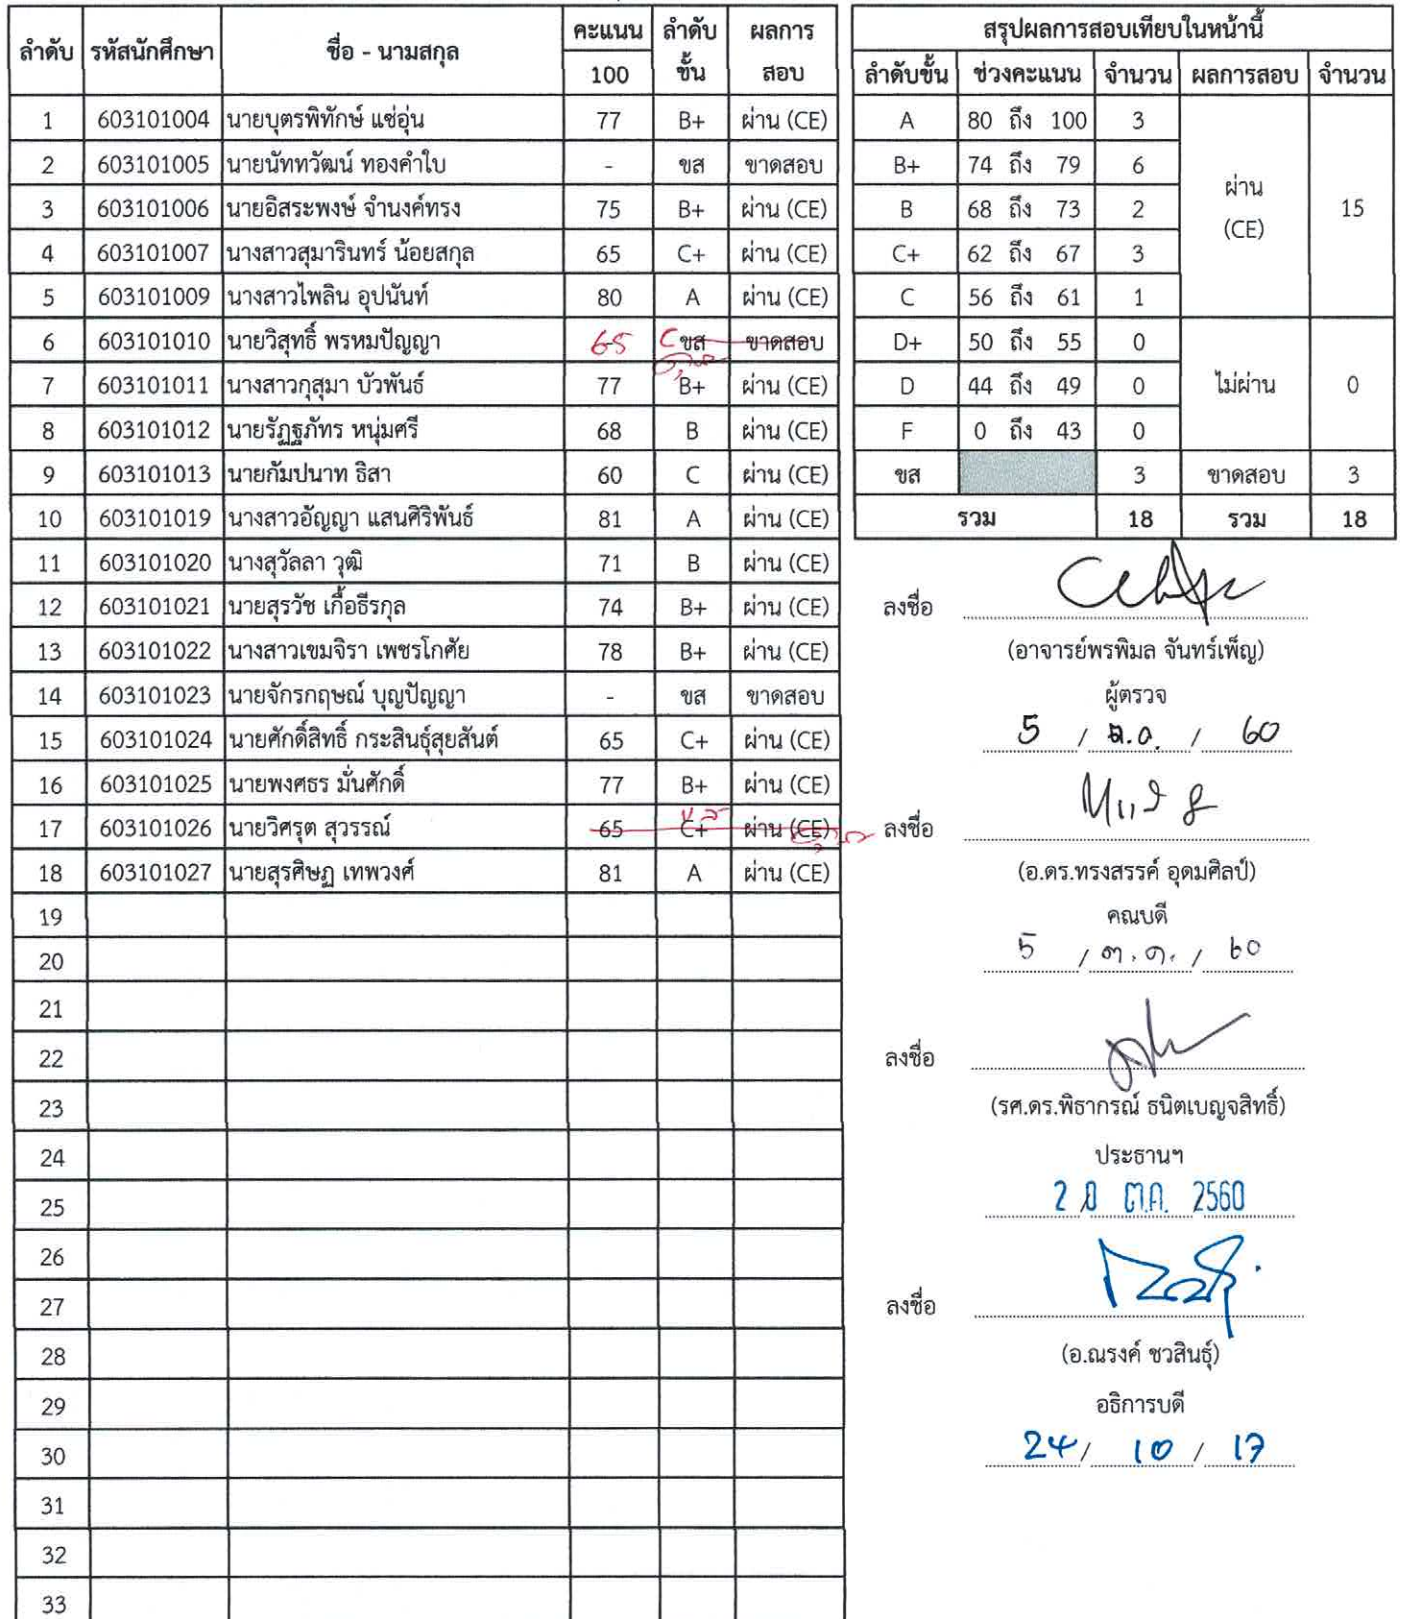 ลำดับ รหัสนักศึกษา ชื่อ - นามสกุล คะแนน 100 ลำดับขั้น ผลการสอบ
1 603101004 นายบุตรพิทักษ์ แซ่อุ่น 77 B+ ผ่าน (CE)
2 603101005 นายนัททวัฒน์ ทองคำใบ - ขส ขาดสอบ
3 603101006 นายอิสระพงษ์ จำนงค์ทรง 75 B+ ผ่าน (CE)
4 603101007 นางสาวสุมารินทร์ น้อยสกุล 65 C+ ผ่าน (CE)
5 603101009 นางสาวไพลิน อุปนันท์ 80 A ผ่าน (CE)
6 603101010 นายวิสุทธิ์ พรหมปัญญา 65 C ขส ขาดสอบ
7 603101011 นางสาวกุสุมา บัวพันธ์ 77 B+ ผ่าน (CE)
8 603101012 นายรัฏฐภัทร หนุ่มศรี 68 B ผ่าน (CE)
9 603101013 นายกัมปนาท ธิสา 60 C ผ่าน (CE)
10 603101019 นางสาวอัญญา แสนศิริพันธ์ 81 A ผ่าน (CE)
11 603101020 นางสุวัลลา วุฒิ 71 B ผ่าน (CE)
12 603101021 นายสุรวัช เกื้อธีรกุล 74 B+ ผ่าน (CE)
13 603101022 นางสาวเขมจิรา เพชรโกศัย 78 B+ ผ่าน (CE)
14 603101023 นายจักรกฤษณ์ บุญปัญญา - ขส ขาดสอบ
15 603101024 นายศักดิ์สิทธิ์ กระสินธุ์สุยสันต์ 65 C+ ผ่าน (CE)
16 603101025 นายพงศธร มั่นศักดิ์ 77 B+ ผ่าน (CE)
17 603101026 นายวิศรุต สุวรรณ์ 65 C+ ขส ผ่าน (CE)
18 603101027 นายสุรศิษฏ เทพวงศ์ 81 A ผ่าน (CE)
19
20
21
22
23
24
25
26
27
28
29
30
31
32
33
สรุปผลการสอบเทียบในหน้านี้
ลำดับขั้น ช่วงคะแนน จำนวน ผลการสอบ จำนวน
A 80 ถึง 100 3
B+ 74 ถึง 79 6
B 68 ถึง 73 2
C+ 62 ถึง 67 3
C 56 ถึง 61 1
ผ่าน
(CE)
15
D+ 50 ถึง 55 0
D 44 ถึง 49 0
F 0 ถึง 43 0
ไม่ผ่าน 0
ขส 3 ขาดสอบ 3
รวม 18 รวม 18
ลงชื่อ
(อาจารย์พรพิมล จันทร์เพ็ญ)
ผู้ตรวจ
5 / ต.ค. / 60
ลงชื่อ
(อ.ดร.ทรงสรรค์ อุดมศิลป์)
คณบดี
5 / ต.ค. / 60
ลงชื่อ
(รศ.ดร.พิธากรณ์ ธนิตเบญจสิทธิ์)
ประธานฯ
20 ต.ค. 2560
ลงชื่อ
(อ.ณรงค์ ชวสินธุ์)
อธิการบดี
24 / 10 / 17